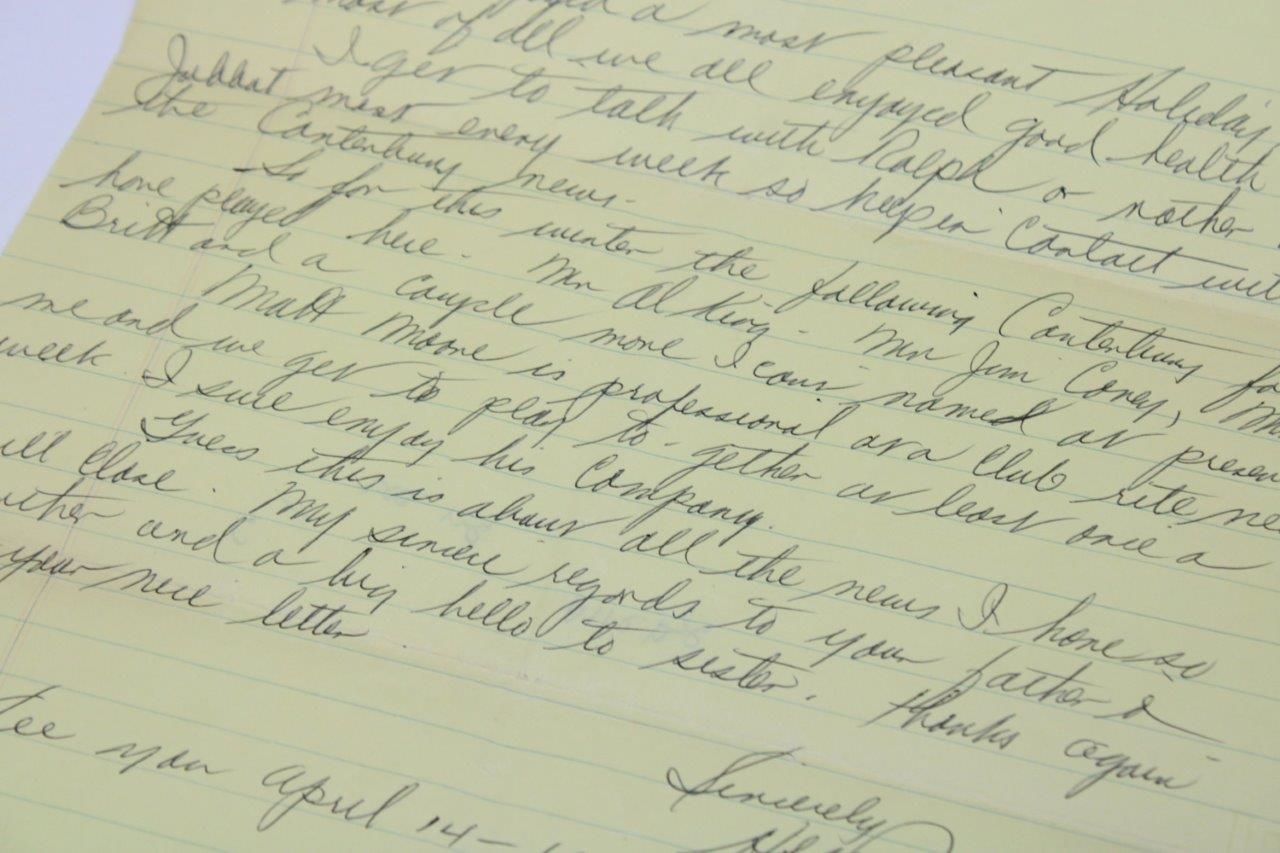 a most pleasant Holiday,
most of all we all enjoyed good health
I get to talk with Ralph or mother
most every week so keep in contact with
the Canterbury news.
So far this winter the following Canterbury
have played here. Mr Al King - Mr Jim Coney,
Britt and a couple more I can't named at presen
Matt Moore is professional at a Club rite ne
me and we get to play to-gether at least once a
week. I sure enjoy his company.
Guess this is about all the news I have so
ill close. My sincere regards to your father &
and a big hello to sister. Thanks again
your nice letter
see you April 14-
Sincerely